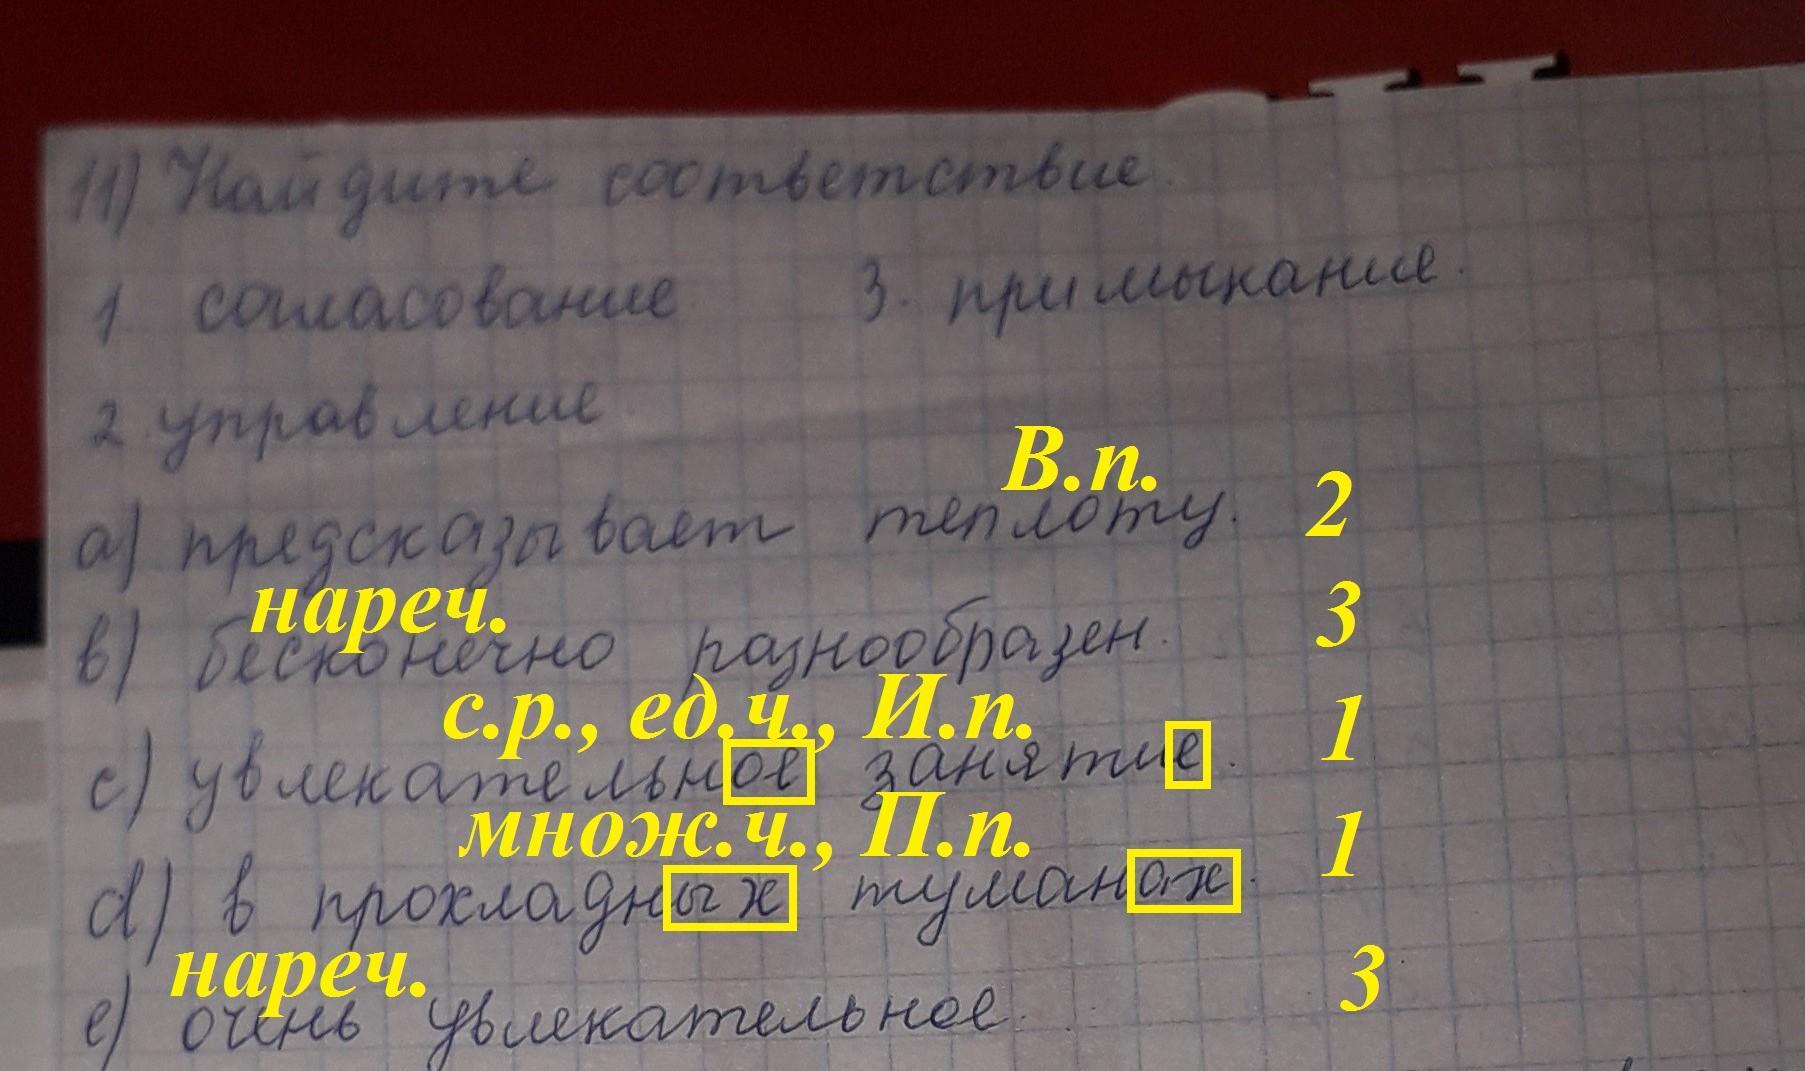 11) Найдите соответствие.
1. согласование 3. примыкание.
2. управление
В.п.
а) предсказывает теплоту. 2
нареч.
в) бесконечно разнообразен. 3
с.р., ед.ч., И.п.
с) увлекательное занятие. 1
множ.ч., П.п.
d) в прохладных туманах. 1
нареч.
е) очень увлекательное. 3